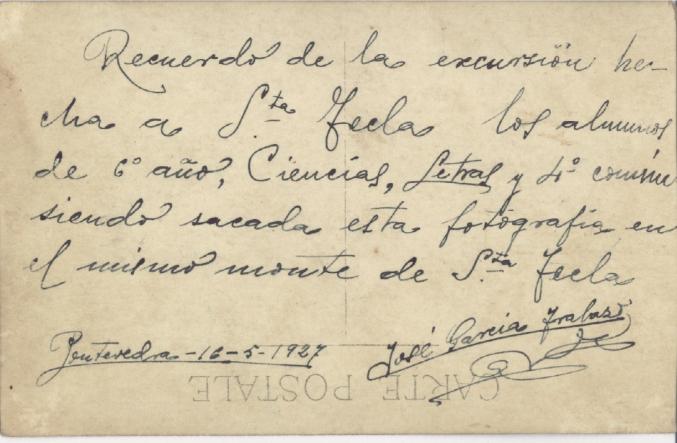 Recuerdo de la excursión he-
cha a S.ta Tecla los alumnos
de 6º año, Ciencias, Letras y 4º común
siendo sacada esta fotografía en
el mismo monte de S.ta Tecla
Pontevedra -16-5-1927
José García Trabazo
CARTE POSTALE